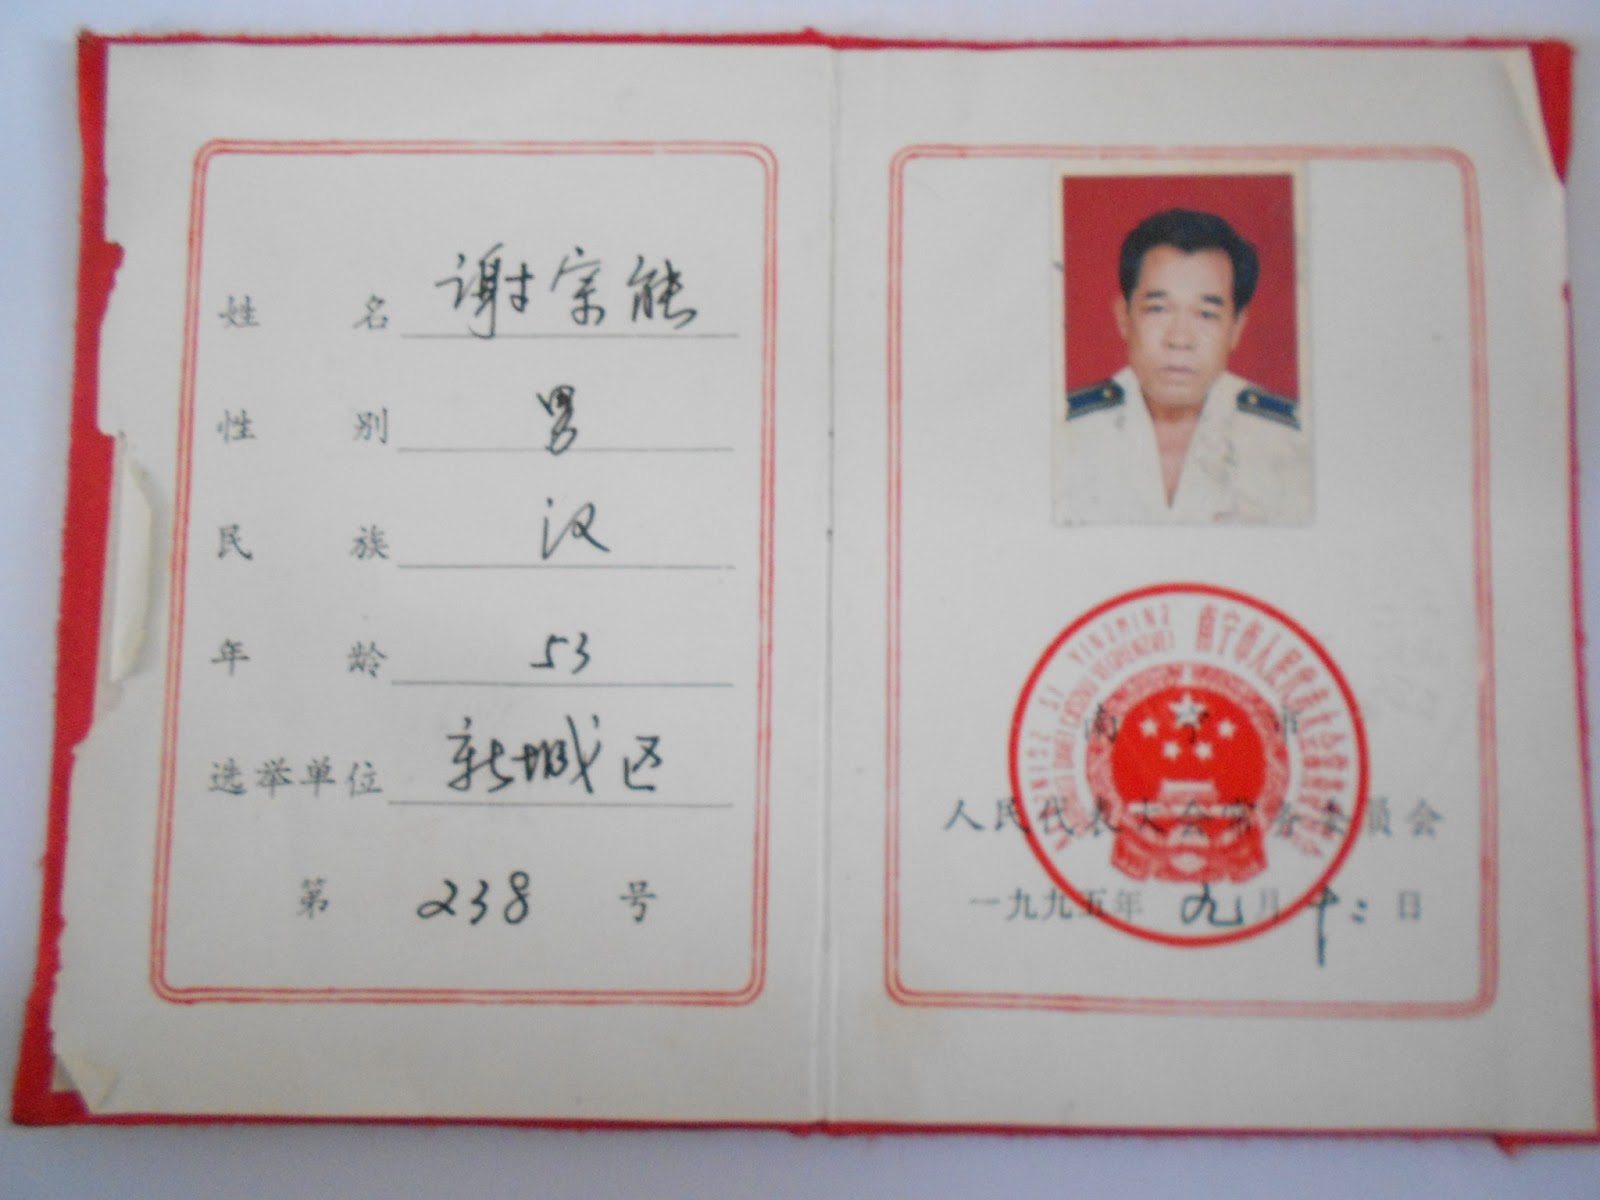 姓名 谢宗能
性别 男
民族 汉
年龄 53
选举单位 新城区
第 238 号
南宁市人民代表大会常务委员会
南宁市
人民代表大会常务委员会
一九九五年 九月 十二日